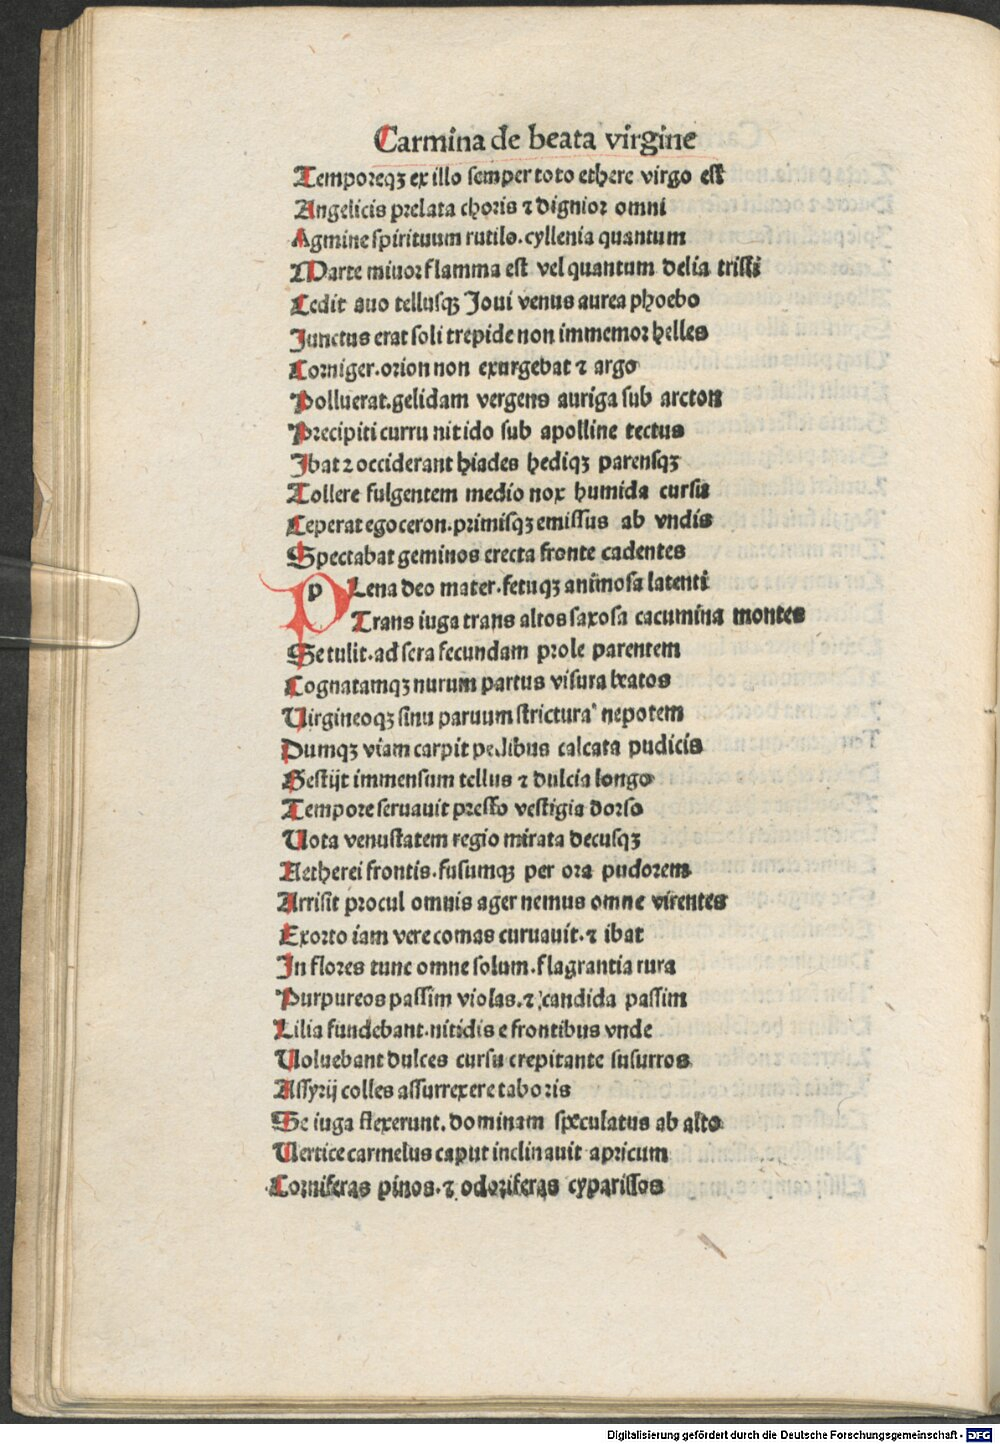 Carmina de beata virgine
Temporeqꝫ ex illo ſemper toto ethere virgo eſt
Angelicis prelata choris ⁊ dignior omni
Agmine ſpirituum rutilo. cyllenia quantum
Marte minor flamma eſt vel quantum delia triſti
Cedit auo telluſqꝫ Joui venus aurea phoebo
Junctus erat ſoli trepide non immemor helles
Corniger. orion non exurgebat ⁊ argo
Polluerat. gelidam vergens auriga ſub arcton
Precipiti curru nitido ſub apolline tectus
Jbat ⁊ occiderant hiades hediqꝫ parenſqꝫ
Tollere fulgentem medio nox humida curſu
Ceperat egoceron. primiſqꝫ emiſſus ab vndis
Spectabat geminos erecta fronte cadentes
PLena deo mater. fetuqꝫ animoſa latenti
Trans iuga trans altos ſaxoſa cacumina montes
Se tulit. ad ſera fecundam prole parentem
Cognatamqꝫ nurum partus viſura beatos
Uirgineoqꝫ ſinu paruum ſtrictura nepotem
Dumqꝫ viam carpit pedibus calcata pudicis
Geſtijt immenſum tellus ⁊ dulcia longo
Tempore ſeruauit preſſo veſtigia dorſo
Uota venuſtatem regio mirata decuſqꝫ
Aetherei frontis. fuſumqꝫ per ora pudorem
Arriſit procul omnis ager nemus omne virentes
Exorto iam vere comas curuauit. ⁊ ibat
Jn flores tunc omne ſolum. flagrantia rura
Purpureos paſſim violas. ⁊ candida paſſim
Lilia fundebant. nitidis e frontibus vnde
Uoluebant dulces curſu crepitante ſuſurros
Aſſyrij colles aſſurrexere taboris
Se iuga flexerunt. dominam ſpeculatus ab alto
Uertice carmelus caput inclinauit apricum
Corniferas pinos. ⁊ odoriferas cypariſſos
Digitalisierung gefördert durch die Deutsche Forschungsgemeinschaft - DFG